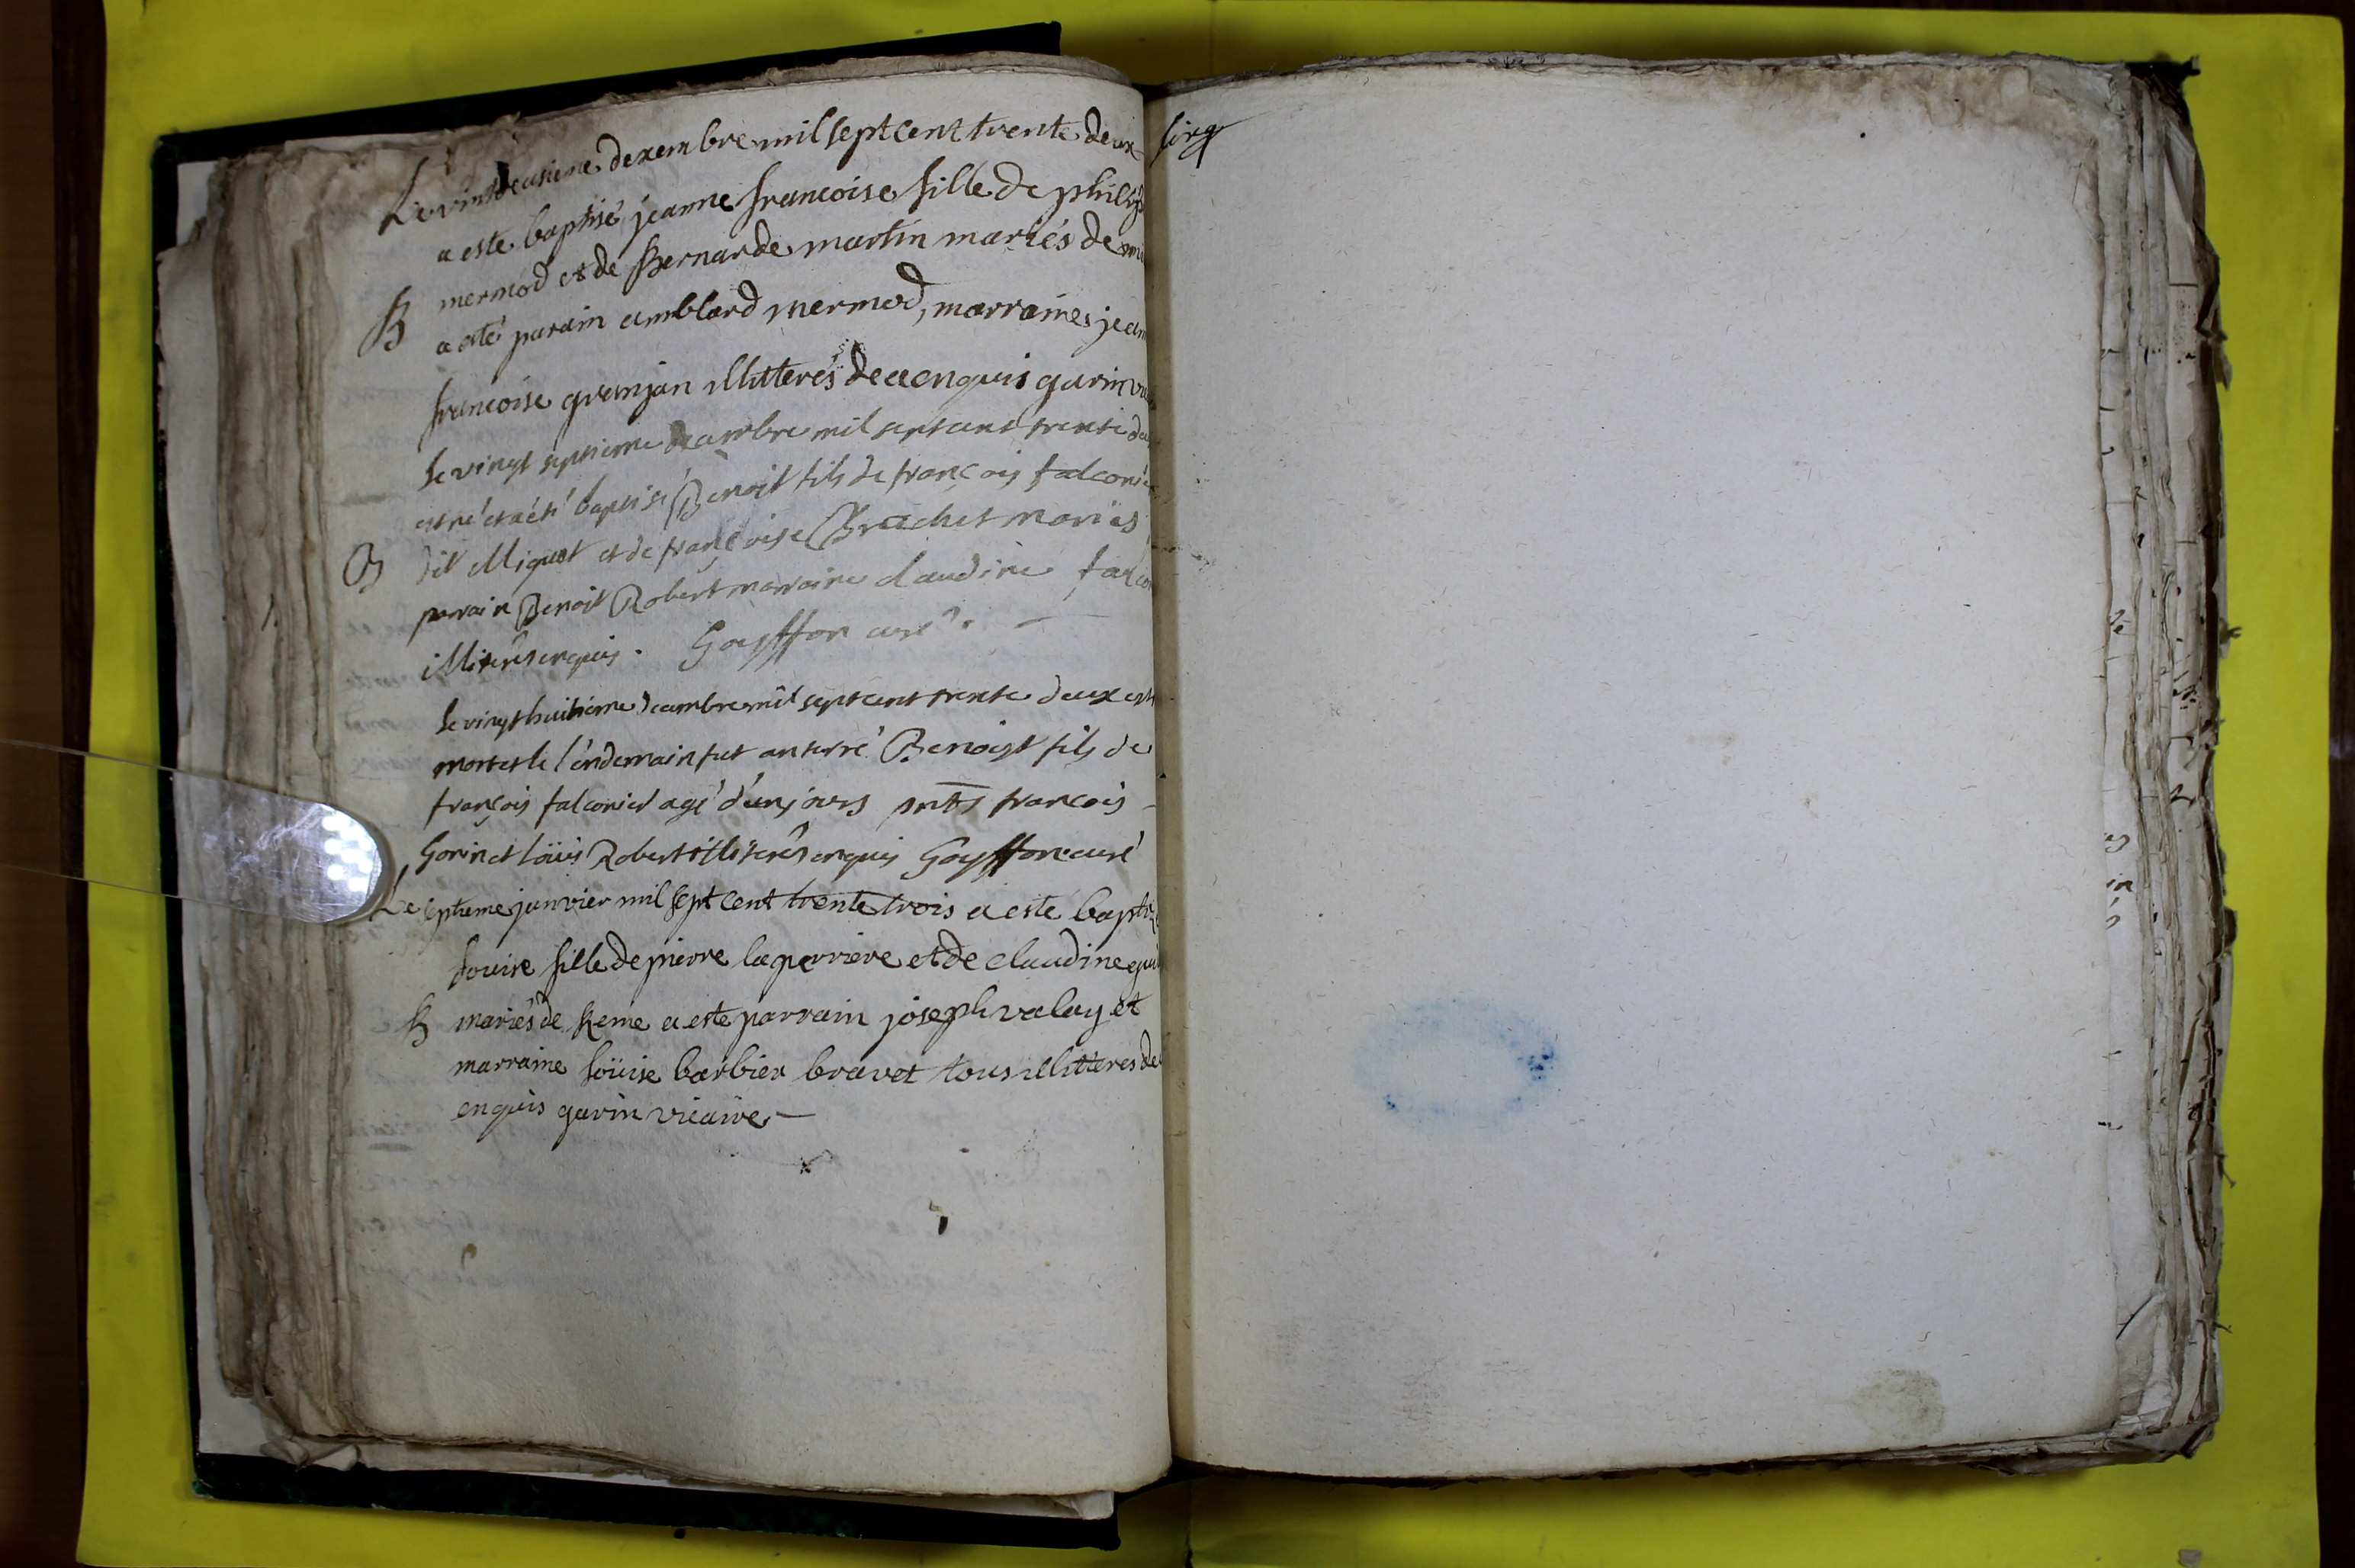 Le vintdeusieme dexembre mil sept cent trente deux
a este baptisé jeanne francoise fille de philip
mermod et de Bernarde martin mariés de
B a eté parain amblard mermod, marraine jean
francoise granjan illitterés de ce enquis gavin
le vingt septieme decembre mil sept cent trente
est né et a été baptisé Benoit fils de françois falconi
B dit Miquet et de françoise Brachet mariés
parrain Benoit Robert marraine claudine falco
illiterés enquis. Goyffon curé.
le vingt huitième decembre mil sept cent trente deux est
mort et le l'endemain fut anterré Benoist fils de
françois falconier agé d'un jours pnts françois
Gorin et loüis Robert illiterés enquis Goyffon curé
Le septieme janvier mil sept cent trente trois a este bapti
louise fille de pierre laperriere et de claudine
B mariés de Reme a este parrain joseph valay et
marraine loüise barbier bravet tous illitteres de
enquis gavin vicaire